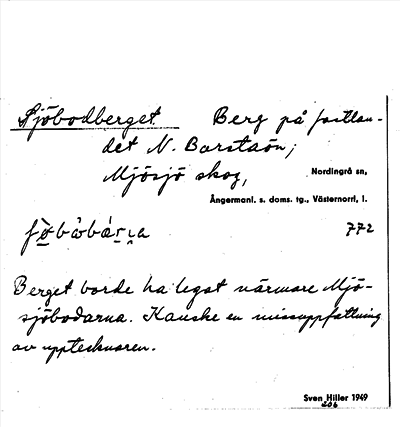 Sjöbodberget Berg på fastlan-
det N. Barstaön;
Mjösjö skog,
Nordingrå sn,
Ångermanl. s. doms. tg., Västernorrl. l.
772
Berget borde ha legat närmare Mjö-
sjöbodarna. Kanske en missuppfattning
av upptecknaren.
Sven Hiller 1949
206